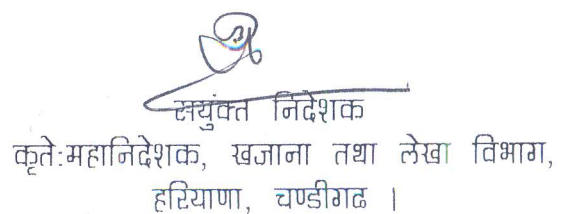 सयुंक्त निदेशक
कृतेःमहानिदेशक, खजाना तथा लेखा विभाग,
हरियाणा, चण्डीगढ ।